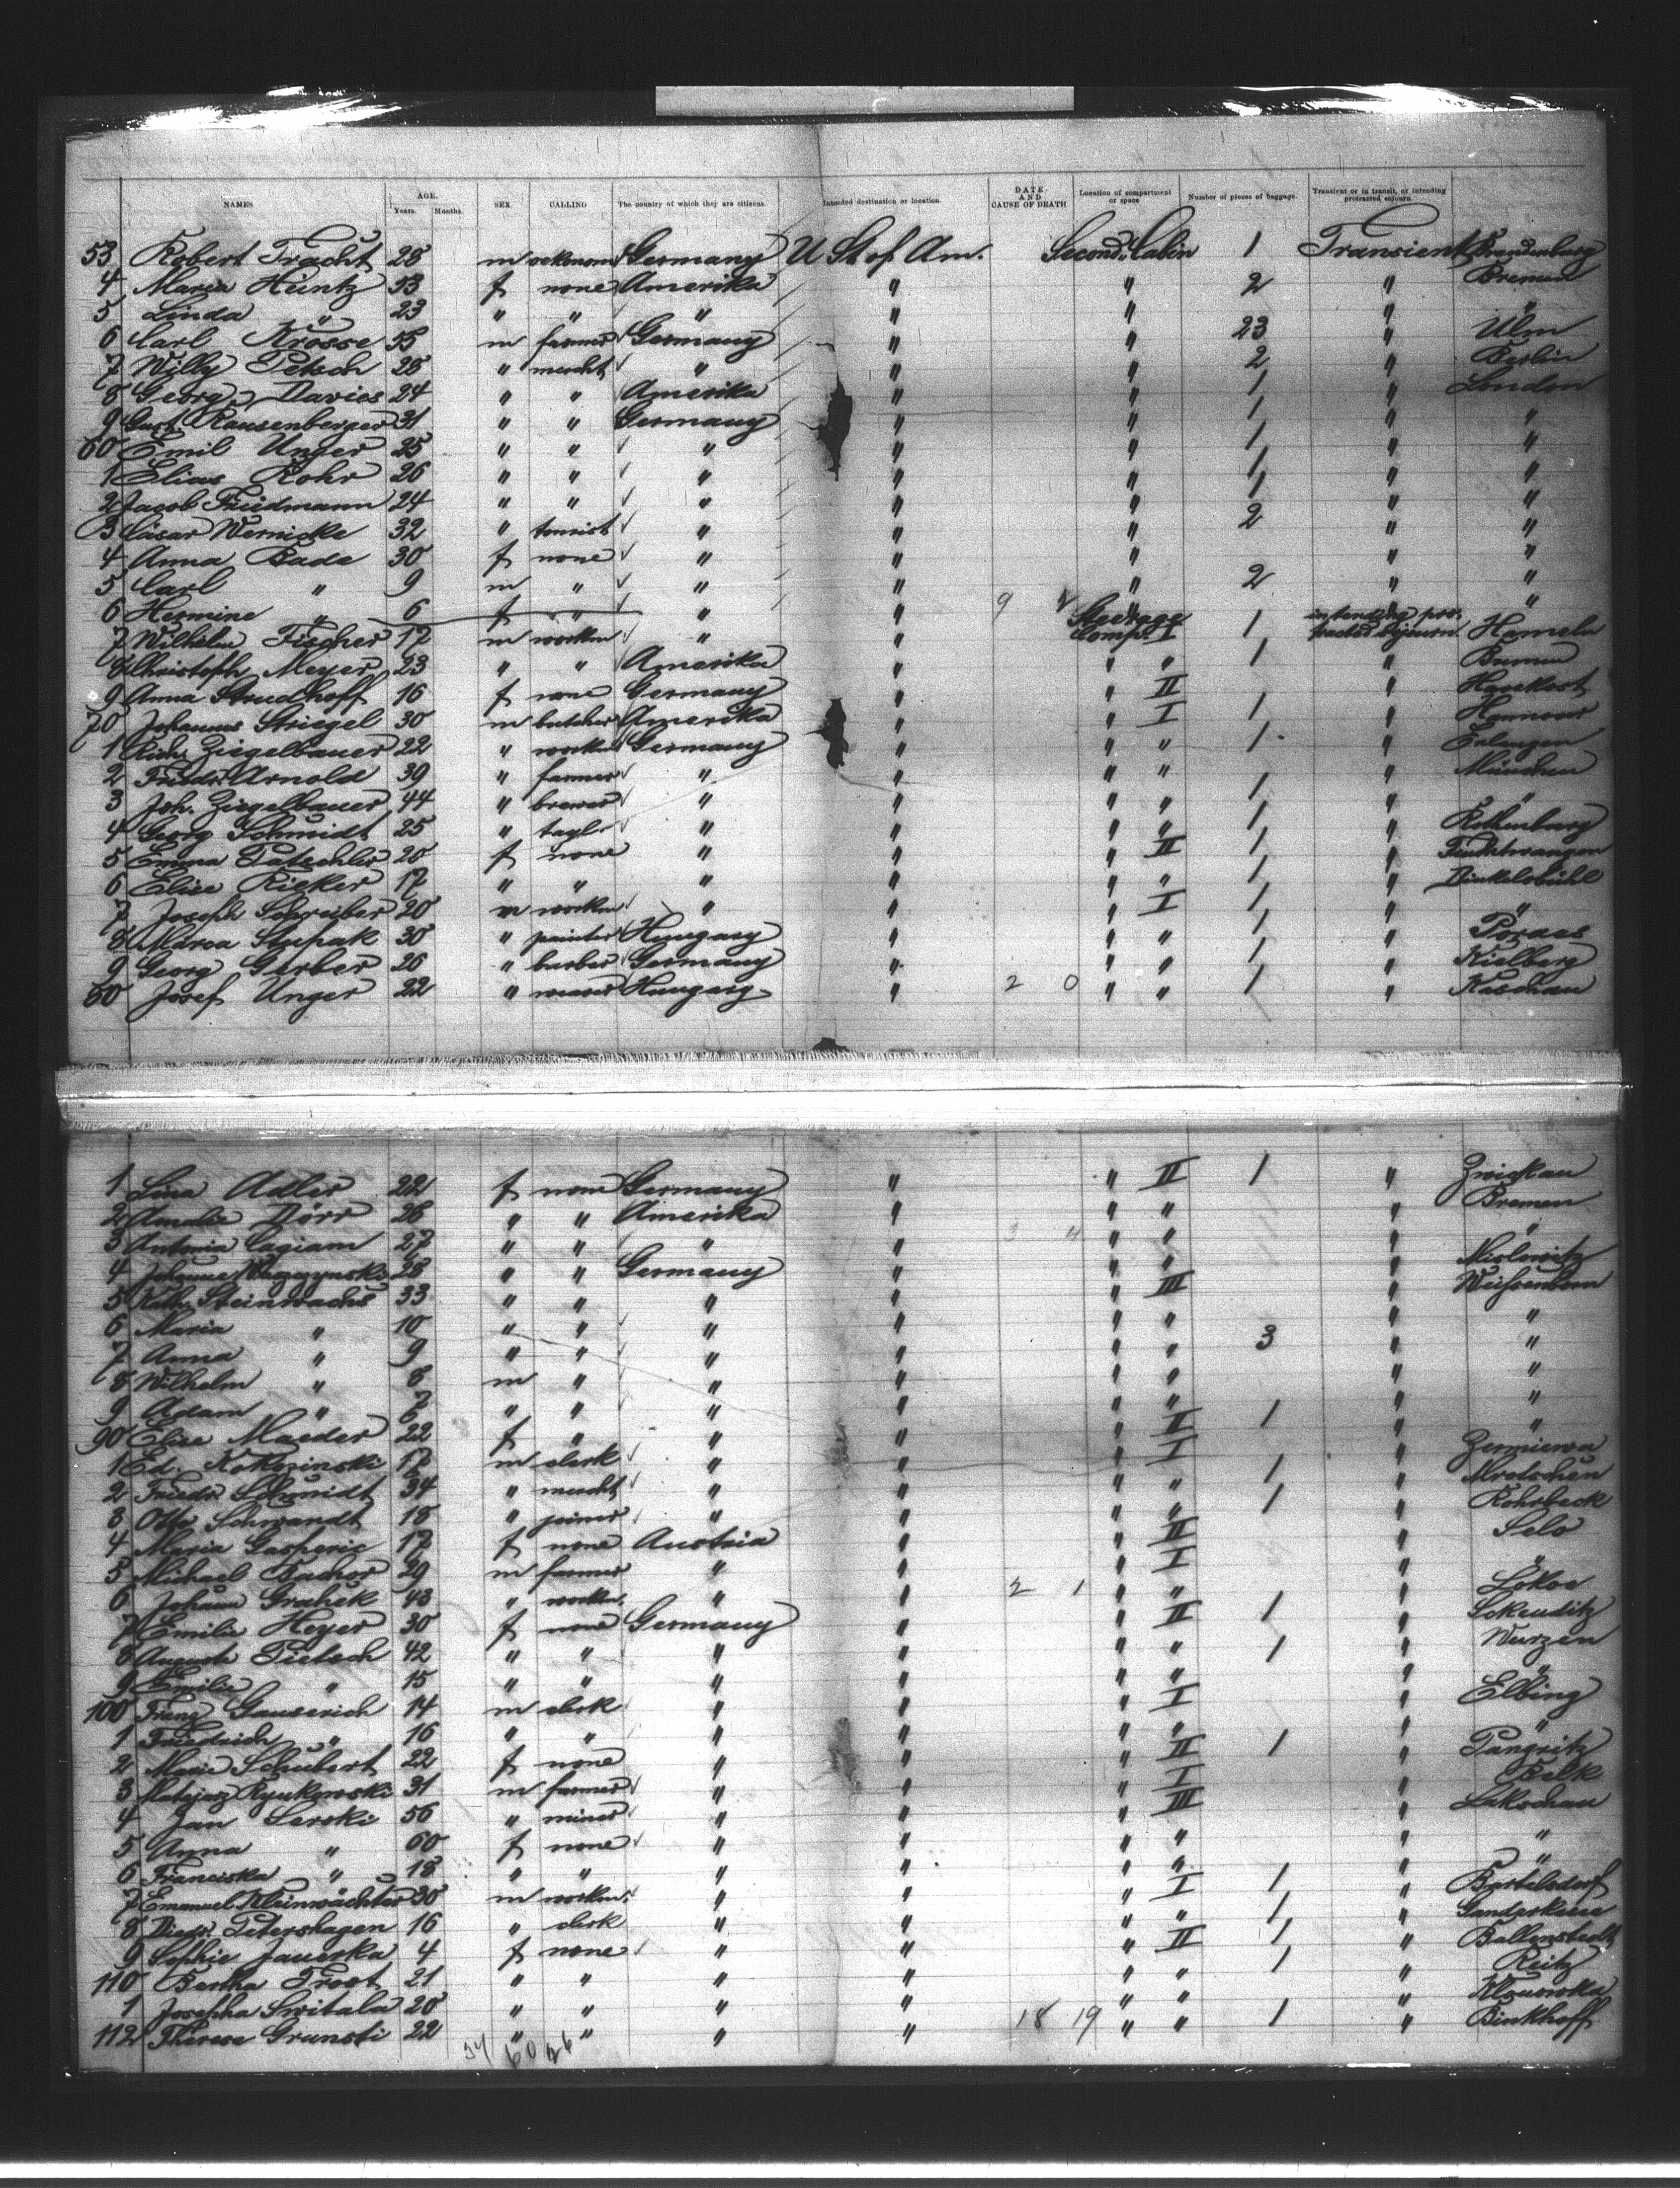 NAMES AGE. Years. Months. SEX. CALLING The country of which they are citizens. Intended destination or location. DATE AND CAUSE OF DEATH Location of compartment or space Number of pieces of baggage. Transient or in transit, or intending protracted sojourn.
53 Robert Tracht 28 m Germany U St of Am. Second Cabin 1 Transient Brandenburg
4 Maria Heintz 53 f none Amerika " " 2 " Bremen
5 Linda " 23 " " " " " " "
6 Carl Krosse 55 m farmer Germany " " 23 " Ulm
7 Willy Petsch 28 " mercht " " " 2 " Berlin
8 Georg Davies 24 " " Amerika " " 1 " London
9 Gust. Rausenberger 31 " " Germany " " 1 " "
60 Emil Unger 25 " " " " " 1 " "
1 Elias Rohr 26 " " " " " 1 " "
2 Jacob Friedmann 24 " " " " " 1 " "
3 Cäsar Wernicke 32 " tourist " " " 2 " "
4 Anna Bade 30 f none " " " " "
5 Carl " 9 m " " " " 2 " "
6 Hermine " 6 f " " " 9 " "
7 Wilhelm Fischer 17 m workm " " Steerage Comp. I 1 intending protracted sijourn Hameln
8 Christoph Meyer 23 " " Amerika " " " 1 " Bremen
9 Anna Strudthoff 16 f none Germany " " II "
70 Johannes Striegel 30 m butcher Amerika " " I 1 " Hannover
1 Rich. Ziegelbauer 22 " workm Germany " " " 1 " Erlangen
2 Friedr. Arnold 39 " farmer " " " " " München
3 Joh. Ziegelbauer 44 " brewer " " " " 1 " "
4 Georg Schmidt 25 " taylr " " " " 1 " Rothenburg
5 Emma Patschler 20 f none " " " II 1 " Feuchtwangen
6 Elise Rieker 17 " " " " " " 1 " Dinkelsbühl
7 Joseph Schreiber 20 m workm " " " I 1 " "
8 Stupak 30 " painter Hungary " " " 1 " Poraes
9 Georg Gerber 26 " barber Germany " " " 1 " Kielberg
80 Josef Unger 22 " weaver Hungary " 2 0 " " 1 " Kaschau
1 Lina Adler 22 f none Germany " " II 1 " Zwickau
2 Amalie Dörr 26 " " Amerika " " " " Bremen
3 Antonia Cagiam 27 " " " " 3 4 " " " "
4 Johanne 28 " " Germany " " " " Mislowitz
5 Kath. Steinwachs 33 " " " " " III " Weissenborn
6 Maria " 10 " " " " " " " "
7 Anna " 9 " " " " " " 3 " "
8 Wilhelm " 8 m " " " " " " "
9 Adam " 7 " " " " " " " "
90 Elise Maeder 22 f " " " " II 1 " "
1 Ed. Kokozinski 17 m clerk " " " I "
2 Friedr. Schmidt 34 " mercht " " " " 1 " Mrotschen
3 Otto Schwandt 18 " joiner " " " " 1 " Rohrbeck
4 Maria Gasperic 17 f none Austria " " II " Selo
5 Michael Bachor 29 m farmer " " " I " "
6 Johann Grahek 43 " workm. " " 2 1 " " " Lokoe
7 Emilie Heyer 30 f none Germany " " II 1 " Sckeuditz
8 Auguste Pietsch 42 " " " " " " 1 " Wurzen
9 Emilie " 15 " " " " " " " "
100 Franz Gauserich 14 m clerk " " " I " Elbing
1 Friedrich " 16 " " " " " " " "
2 Marie Schubert 22 f none " " " II 1 " Pangritz
3 Matejarz Rynkowski 31 m farmer " " " I " Belk
4 Jan Serski 56 " miner " " " III " Lukschau
5 Anna " 60 f none " " " " " "
6 Franciska " 18 " " " " " " " "
7 Emanuel Kleinwächter 30 m workm. " " " I 1 " Bartelsdorf
8 Diedr. Petershagen 16 " clerk " " " " 1 " Ganderkesee
9 Sophie Jaueska 4 f none " " " II 1 " Ballenstedt
110 Bertha Trost 21 " " " " " " 1 " Reitz
1 Josepha Switala 20 " " " " " " "
112 Therese Grunski 22 " " " " 18 19 " " 1 " Binkhoff
60 26